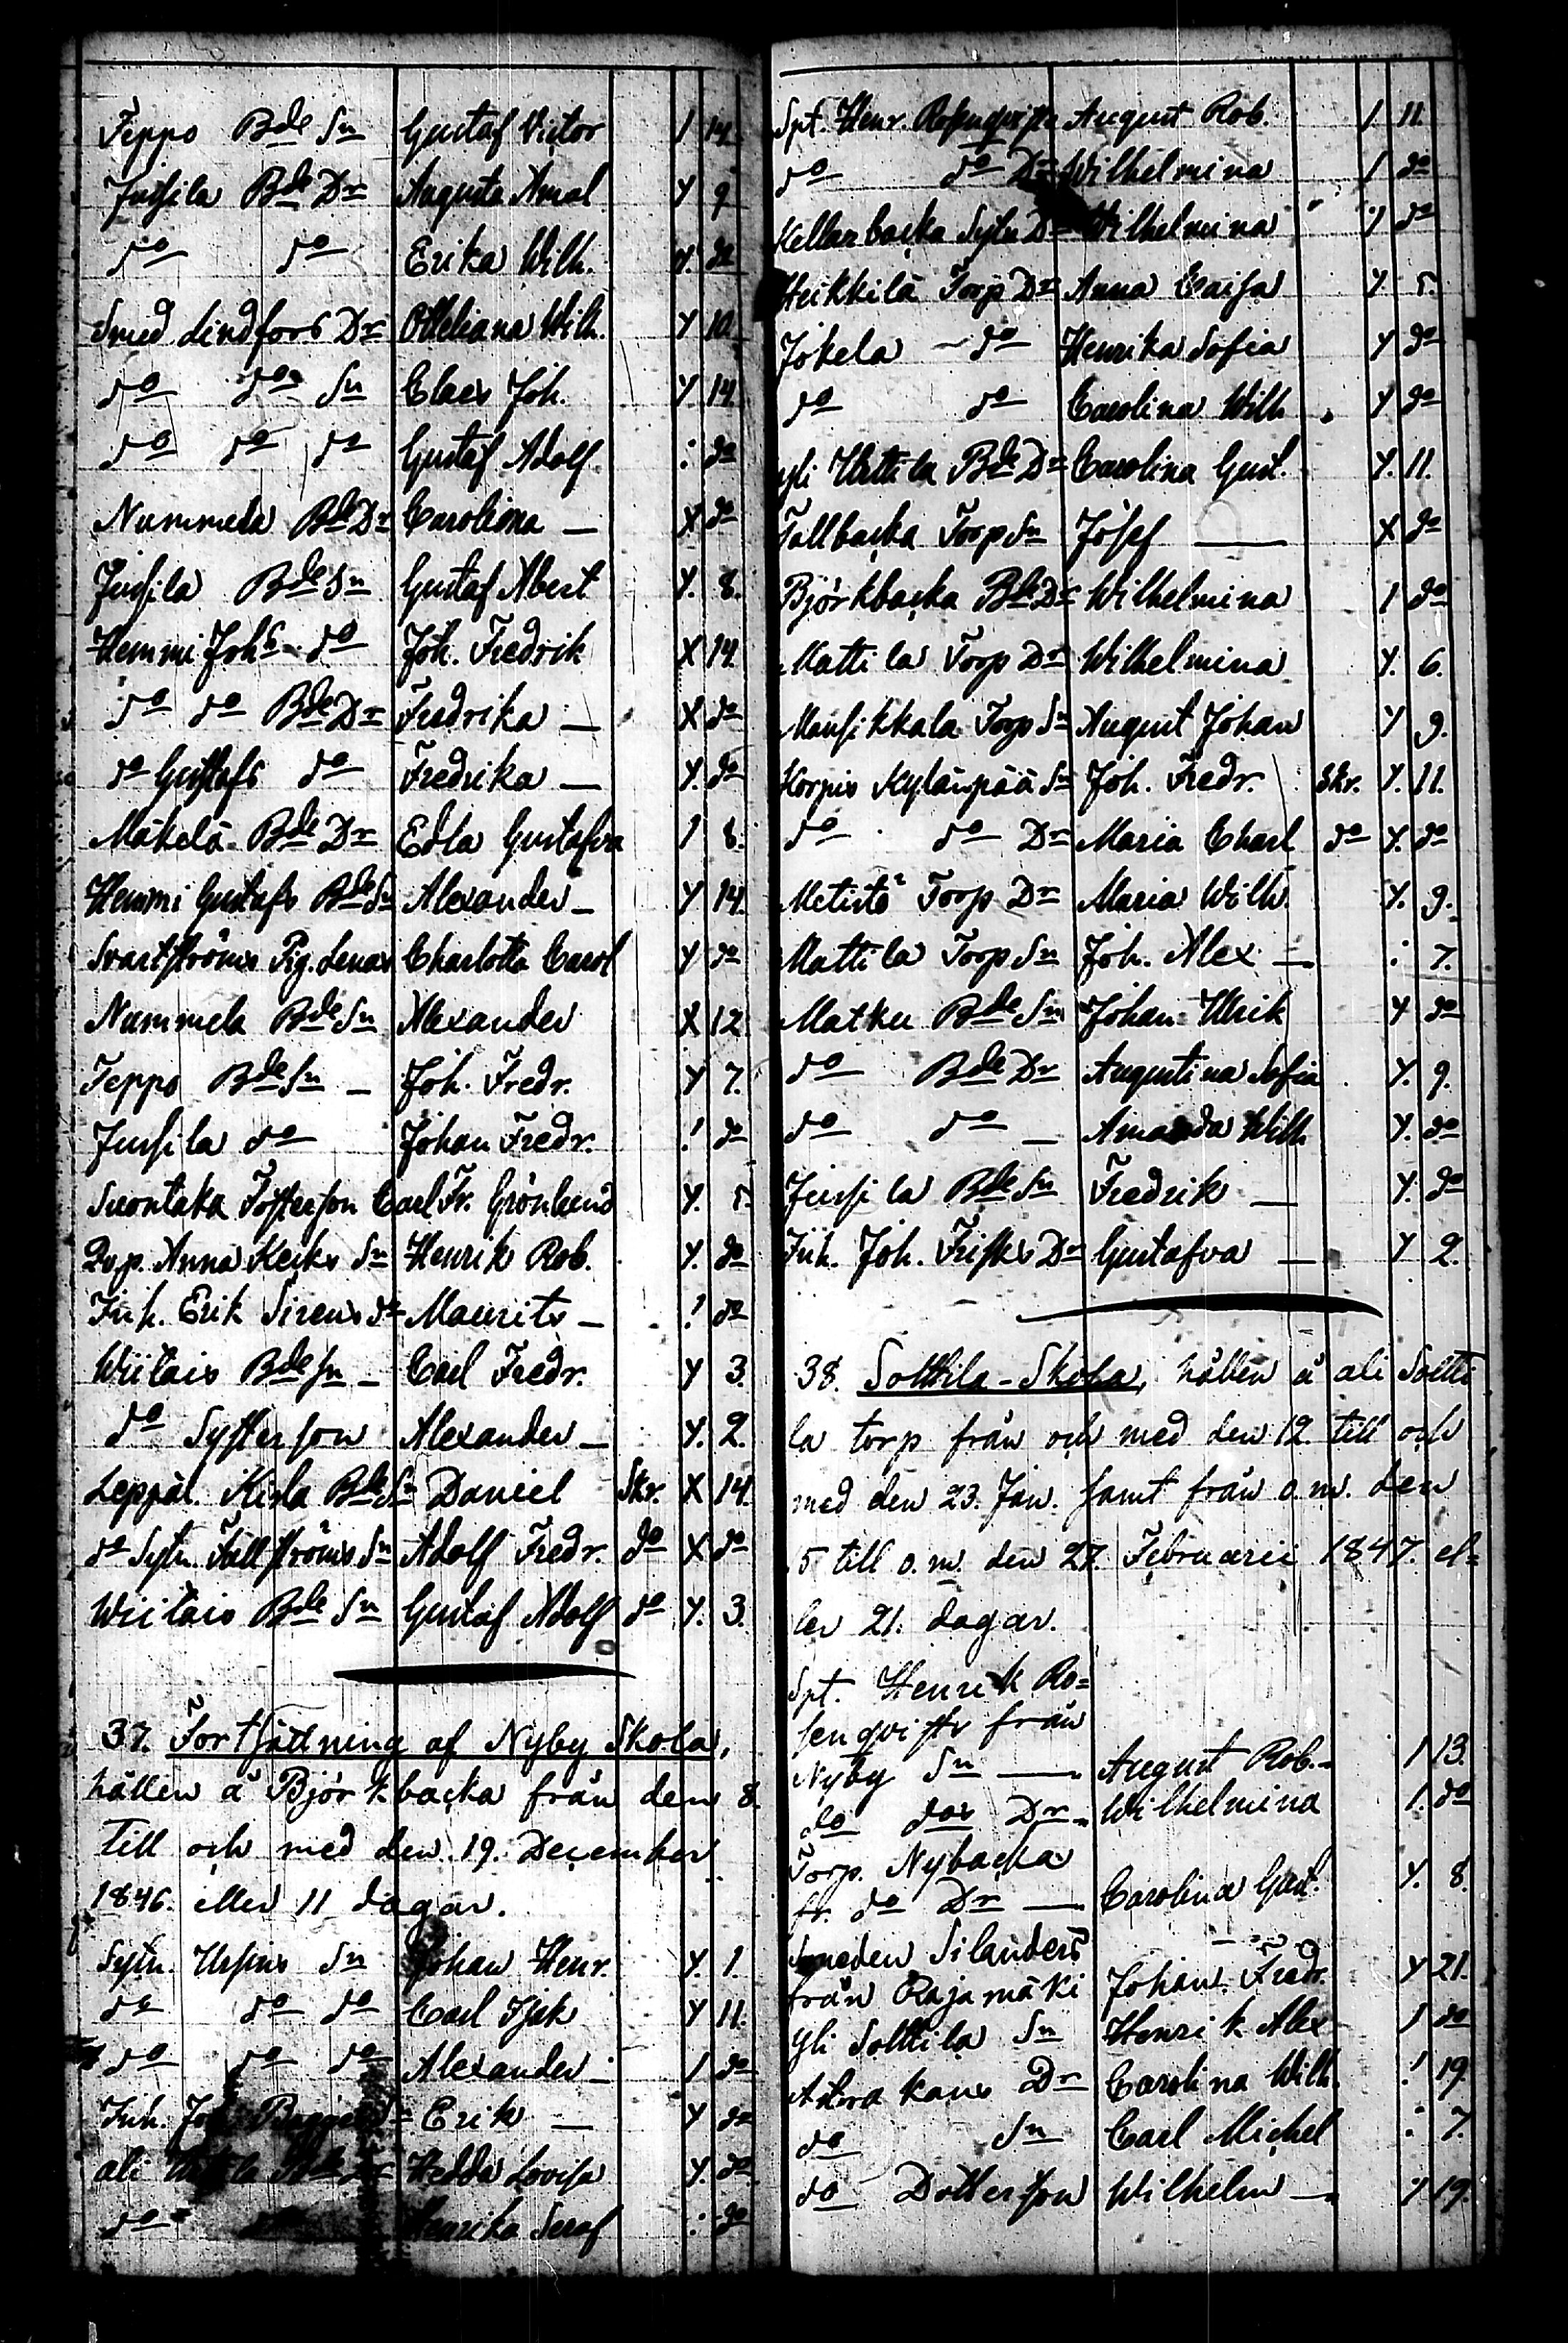 Teppo Bde Sn Gustaf Victor / 14
Jussila Bde Dr Augusta Amal Y 9
do do Erika Wilh. Y. do
Smed Lindfors Dr Otteliana Wilh. Y 10
do do Sn Claes Joh. Y. 14
do do do Gustaf Adolf : do
Nummela Bde Dr Carolina — X do
Jussila Bde Sn Gustaf Abert Y. 8.
Hemmi Johs do Joh. Fredrik X 14
do do Bde Dr Fredrika — X do
do Gustafs do Fredrika — Y. do
Mäkelä Bde Dr Edla Gustafva / 8.
Hemmi Gustafs Bde Sn Alexander — Y 14.
Svartströms Pig. Lenas Charlotta Carol Y do
Nummela Bde Sn Alexander X 12
Teppo Bde Sn — Joh. Fredr. Y 7.
Jussila do Johan Fredr. ! do
Suontaka Fosterson Carl Fr. Grönlund Y. 5
Qvp. Anna Keiks Sn Henrik Rob. Y. do
Inh. Erik Sirens do Maurits — ! do
Wiitais Bde Sn — Carl Fredr. Y 3.
do Systerson Alexander — Y. 2.
Leppäl. Kisla Bde Sn Daniel Skr. X 14.
do Sytn. Fällströms Sn Adolf Fredr. do X do
Wiitais Bde Sn Gustaf Adolf do Y. 3.
37. Fortsättning af Nyby Skola,
hållen å Björkbacka från den 8.
till och med den 19. December
1846. eller 11 dagar.
Sytn. Ursins Sn Johan Henr. Y. 1.
do do do Carl Isak Y 11.
do do do Alexander — / do
Inh. Erik — Y do
ali Hedda Lovisa Y. do
do Henrika Seraf : do
Spt. Henr. Rosenqvists August Rob. / 11
do do Dr Wilhelmina / do
Kellarbacka Sytn Dr Wilhelmina Y do
Heikkilä Torp Dr Anna Caisa Y 5.
Jokela — do Henrika Sofia Y do
do do Carolina Wilh Y do
yli Uttila Bde Dr Carolina Gust. Y. 11.
Tallbacka Torp Sn Josef — X do
Björkbacka Bde Dr Wilhelmina / do
Mattila Torp Dr Wilhelmina Y. 6.
Mansikkala Torp Sn August Johan Y 9.
Korpis Kylänpää Sn Joh. Fredr. Skr. Y. 11.
do do Dr Maria Charl do Y. do
Metistö Torp Dr Maria Wilh Y. 9.
Mattila Torp Sn Joh. Alex — : 7.
Matku Bde Sn Johan Ulrik Y do
do Bde Dr Augustina Sofia Y. 9.
do do — Amanda Wilh Y. do
Jussila Bde Sn Fredrik — Y. do
Inh. Joh. Frisks Dr Gustafva — Y 2.
38. Solttila-Skola, hållen å ali Soltti
la torp från och med den 12. till och
med den 23. Jan. samt från o. m. den
5 till o. m. den 27. Februarii 1847. el=
ler 21. dagar.
Spt. Henrik Ro=
senqvists från
Nyby Sn — August Rob. — / 13.
do dos Dr — Wilhelmina /. do
Torp. Nybacka
fr. do Dr — Carolina Gust. Y. 8.
Smeden Silanders
från Rajamäki Johan Fredr. Y 21.
Yli Solttila Sn Henrik Alex / do
Dr Carolina Wilh. ! 19.
do Sn Carl Michel : 7.
do Dotterson Wilhelm — Y 19.